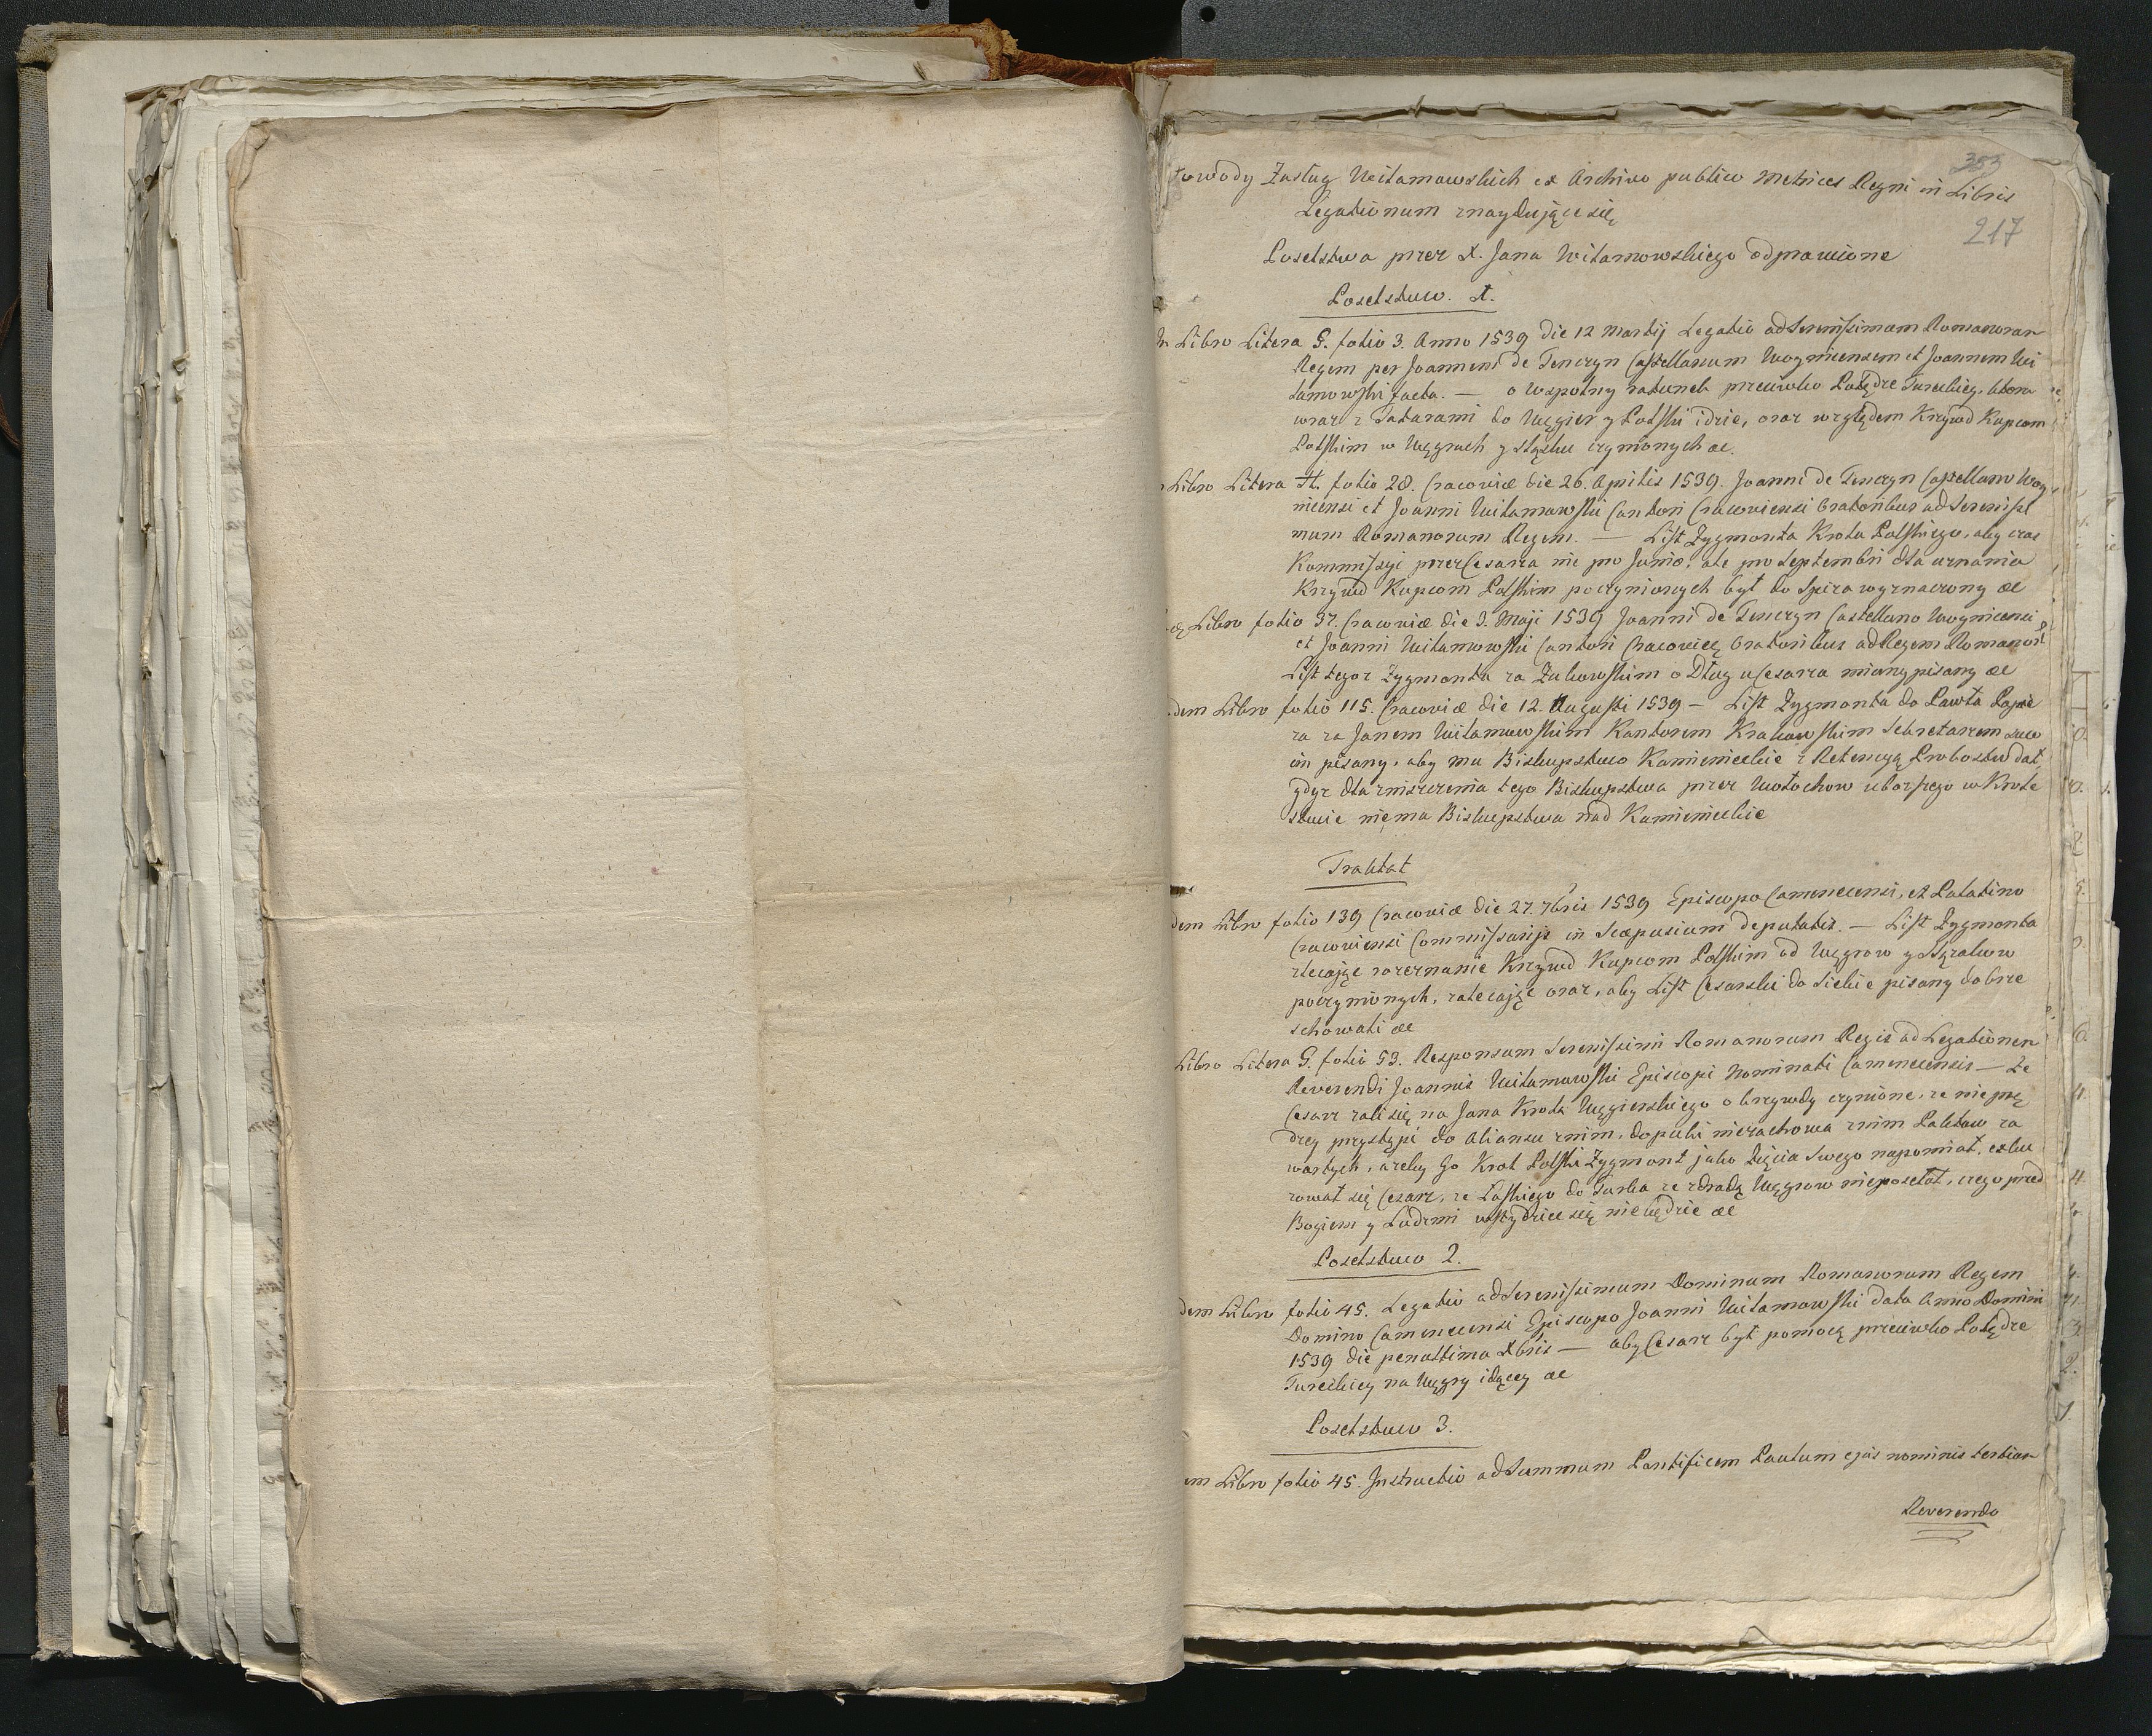 353
217
owody Zasług Wilamowskich ex Archivo publico Metrices Regni in Libris
Legationum znaydujące się
Poselstwa przez X. Jana Wilamowskiego odprawione
Poselstwo. 1.
Libro Litera G. folio 3. Anno 1539 die 12 Martij Legatio ad Serenissimam Romanorum
Regem per Joannem de Tenczyn Castellanum Woynicensem et Joannem Wi
lamowski facta. — o wspolny ratunek przeciwko Potędze Tureckiey, ktora
wraz z Tatarami do Węgier y Polski idzie, oraz względem Krzywd Kupcom
Polskim w Węgrzech y Sląsku czynionych &c.
Libro Litera H. folio 28. Cracoviæ die 26. Aprilis 1539. Joanni de Tenczyn Castellano Woy
nicensi et Joanni Wilamowski Cantori Cracoviensi Oratoribus ad Serenissi
mum Romanorum Regem. — List Zygmonta Krola Polskiego, aby czas
Kommissyi przez Cesarza nie pro Junio, ale pro Septembri dla uznania
Krzywd Kupcom Polskim poczynionych był do Spira wyznaczony &c
Libro folio 37. Cracoviæ die 3. Maji 1539 Joanni de Tenczyn Castellano Woynicensi
et Joanni Wilamowski Cantori Cracovieñ Oratoribus ad Regem Romanor
List tegoz Zygmonta za Zukowskim o Dług u Cesarza miany pisany &c
dem Libro folio 115. Cracoviæ die 12. Augusti 1539 — List Zygmonta do Pawła Papie
za za Janem Wilamowskim Kantorem Krakowskim Sekretarzem swo
im pisany, aby mu Biskupstwo Kamienieckie z Retencyą Probostw dał,
gdyz dla zniszczenia tego Biskupstwa przez Wołochow uboższego w Krole
stwie nie ma Biskupstwa nad Kamienieckie
Traktat
dem Libro folio 139 Cracoviæ die 27. 7bris 1539 Episcopo Camenecensi, et Palatino
Cracoviensi Commissarijs in Scepusium deputatis. — List Zygmonta
zlecaiąc rozeznanie Krzywd Kupcom Polskim od Węgrow y Slązakow
poczynionych, zalecaiąc oraz, aby List Cesarski do Siebie pisany dobrze
schowali &c
Libro Litera G. folio 53. Responsum Serenissimi Romanorum Regis ad Legationem
Reverendi Joannis Wilamowski Episcopi Nominati Camenecensis — Ze
Cesarz zali się na Jana Krola Węgierskiego o krzywdy czynione, ze nie prę
dzey przystąpi do Aliansu z nim, dopuki nie zachowa z nim Paktow za
wartych, azeby go Krol Polski Zygmont jako Zięcia swego napomniał, exku
zował się Cesarz, ze Łaskiego do Turka ze zdradą Węgrow nie posełał, czego przed
Bogiem y Ludzmi wstydzić się nie będzie &c
Poselstwo 2.
dem Libro folio 45. Legatio ad Serenissimum Dominum Romanorum Regem
Domino Camenecensi Episcopo Joanni Wilamowski data Anno Domini
1539 die penultima Xbris — aby Cesarz był pomocą przeciwko Potędze
Tureckiey na Węgry idącey &c
Poselstwo 3.
em Libro folio 45. Instructio ad Summum Pontificem Paulum ejus nominis tertium
Reverendo